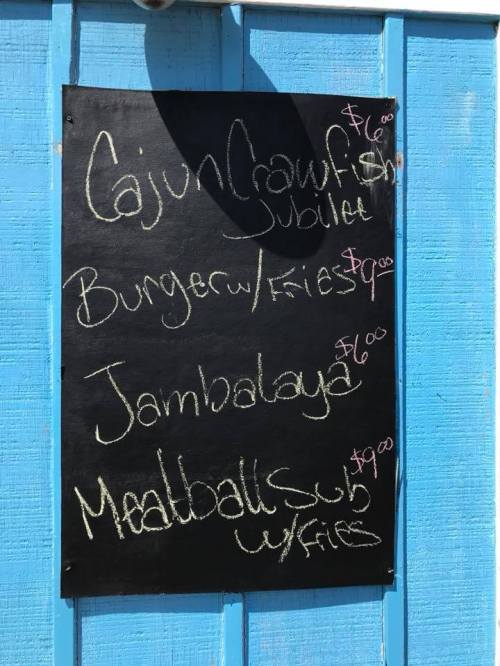 $6.00
Cajun Crawfish
Jubilee
Burger w/ Fries $9.00
$6.00
Jambalaya
$9.00
Meatball Sub
w/ Fries